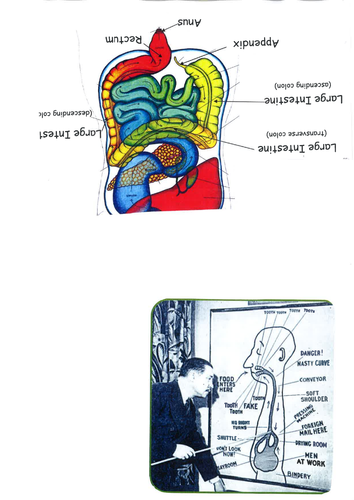 Anus
Rectum
Appendix
Large Intestine
(ascending colon)
Large Intest
(descending colo
Large Intestine
(transverse colon)
TOOTH TOOTH TOOTH TOOTH
DANGER!
NASTY CURVE
FOOD
ENTERS
HERE
CONVEYOR
SOFT
SHOULDER
TOOTH
TOOTH
FAKE
TOOTH
PRESSING
MACHINE
NO RIGHT
TURNS
FOREIGN
MAIL HERE
SHUTTLE
DRYING ROOM
DON'T LOOK
NOW!
MEN
AT WORK
LAYROOM
BINDERY